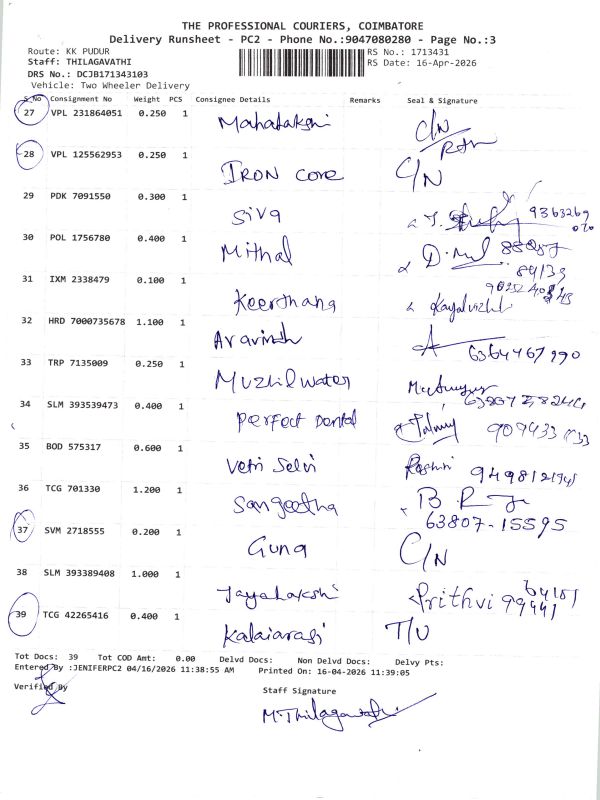 THE PROFESSIONAL COURIERS, COIMBATORE
Delivery Runsheet - PC2 - Phone No.:9047080280 - Page No.:3
Route: KK PUDUR
RS No.: 1713431
Staff: THILAGAVATHI
RS Date: 16-Apr-2026
DRS No.: DCJB171343103
Vehicle: Two Wheeler Delivery
S.No Consignment No Weight PCS Consignee Details Remarks Seal & Signature
27 VPL 231864051 0.250 1 Mahalakshi C/N
28 VPL 125562953 0.250 1 IRON core C/N
29 PDK 7091550 0.300 1 Siva
30 POL 1756780 0.400 1 Mithal
31 IXM 2338479 0.100 1 Keerthana Kayalvizhi
32 HRD 7000735678 1.100 1 Aravinth 6364467990
33 TRP 7135009 0.250 1 Muzhilwater
34 SLM 393539473 0.400 1 Perfect Dental
35 BOD 575317 0.600 1 Vetri Selvi Roshni
36 TCG 701330 1.200 1 Sangeetha
63807-15595
37 SVM 2718555 0.200 1 Guna C/N
38 SLM 393389408 1.000 1 Jayalakshi Prithvi 99441
39 TCG 42265416 0.400 1 Kalaiarasi T/U
Tot Docs: 39 Tot COD Amt: 0.00 Delvd Docs: Non Delvd Docs: Delvy Pts:
Entered By :JENIFERPC2 04/16/2026 11:38:55 AM Printed On: 16-04-2026 11:39:05
Verified By Staff Signature
M.Thilagavathi